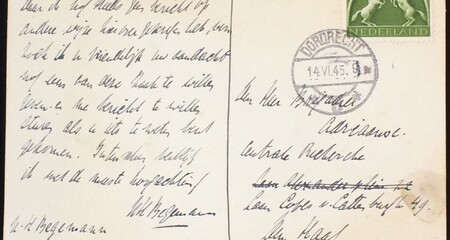 daar ik nog steeds geen bericht op
andere wijze hierover gekregen heb,
zoek ik u vriendelijk uw aandacht
nog eens aan deze te willen
geven en me bericht te willen
sturen als u iets te weten bent
gekomen. Intusschen
ik met de meeste hoogachting
WH Begemann
W. H. Begemann
NEDERLAND
DORDRECHT
14.VI.45. 9
Den Heer Brigadier
Adriaanse.
Centrale Recherche
Laan Copes v. Cattenburgh 49.
Den Haag